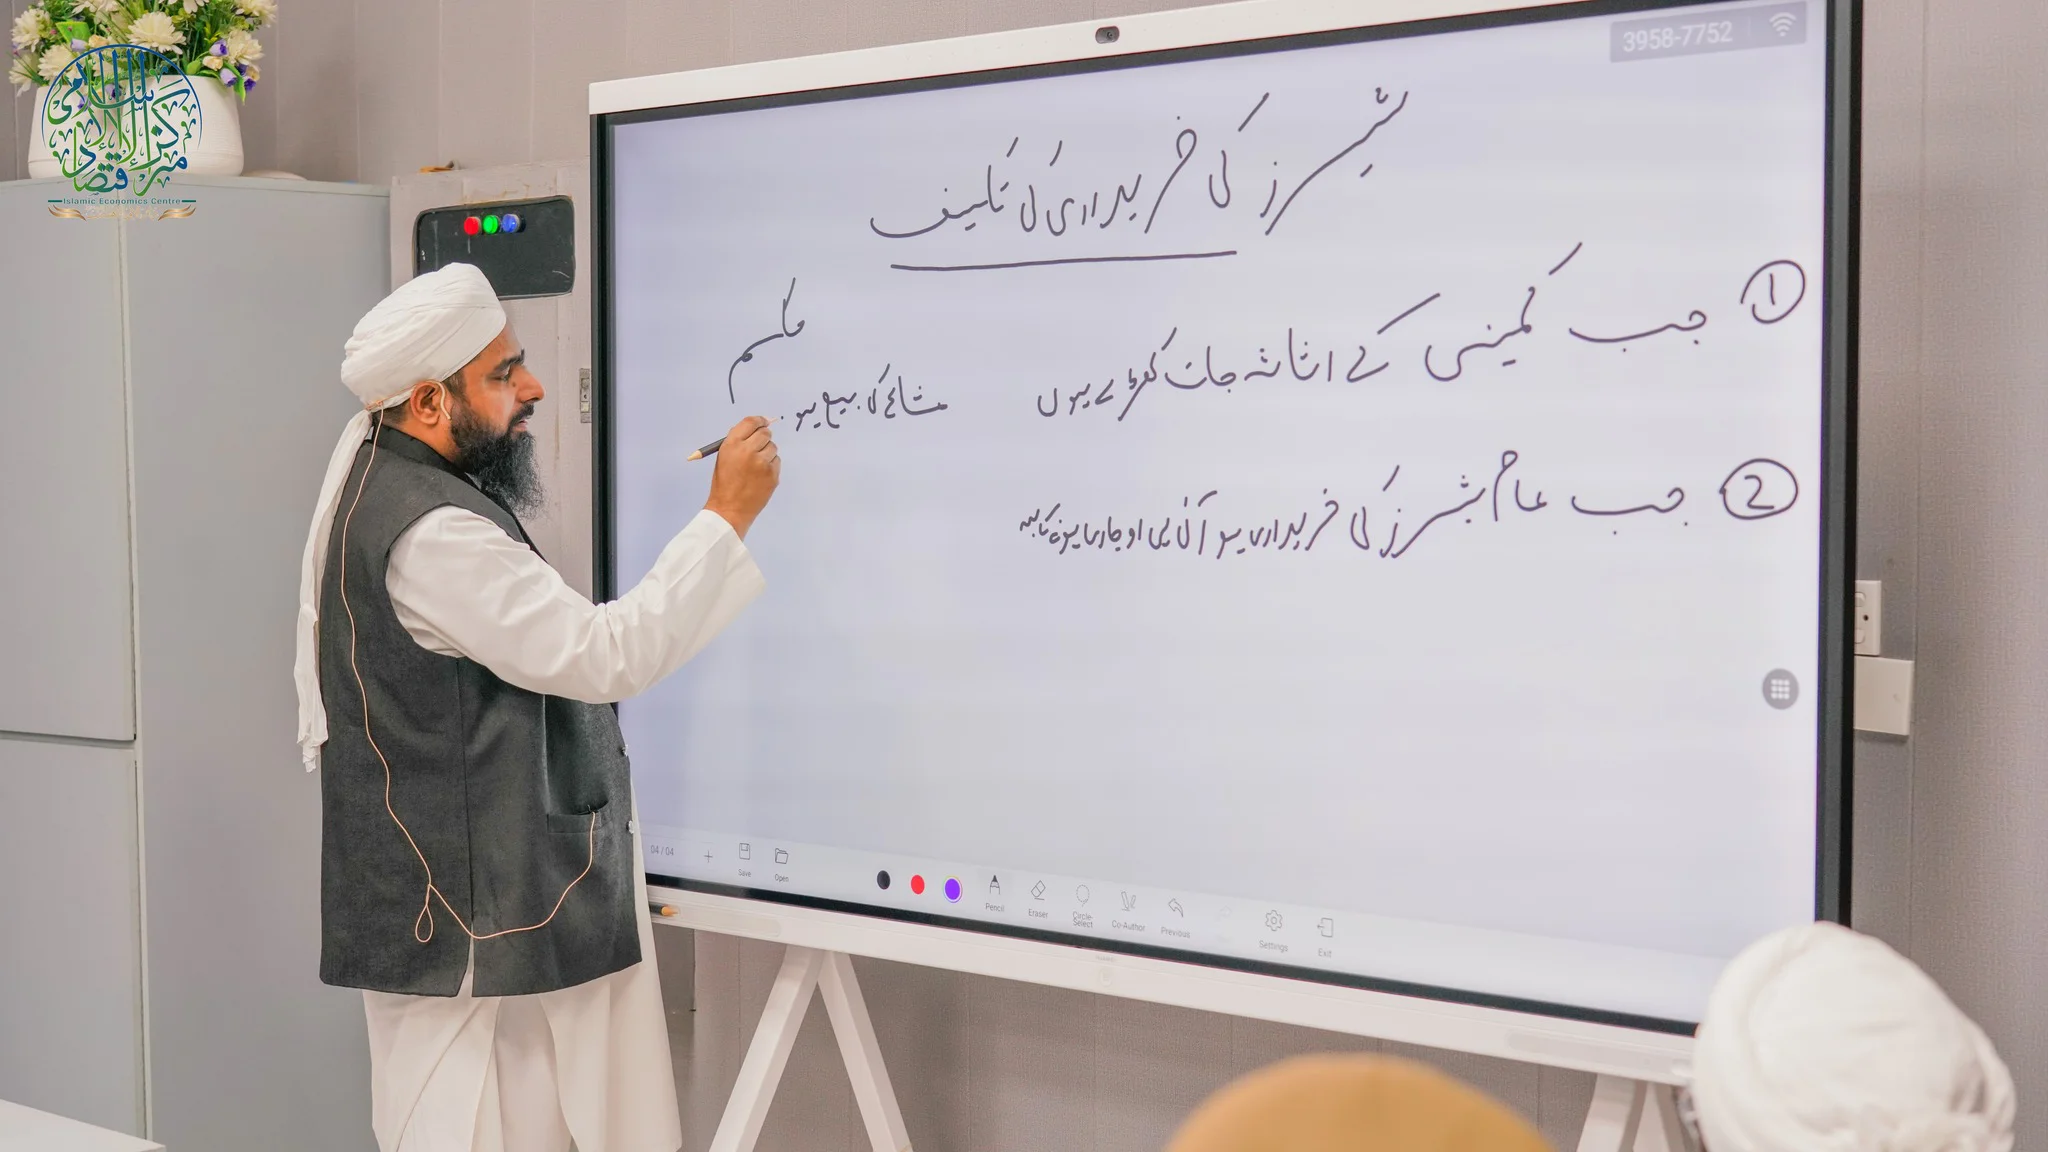 3958-7752
شیرز کی خریداری کی تکییف
① جب کمپنی کے اثاثہ جات کھڑے ہوں
② جب عام شیرز کی خریداری ہو آئی پی او جاری ہونے کا بعد
حکم
مشاع کی بیع ہو
مركز الاقتصاد الإسلامي
Islamic Economics Centre
04 / 04
Save
Open
Pencil
Eraser
Circle-Select
Co-Author
Previous
Settings
Exit